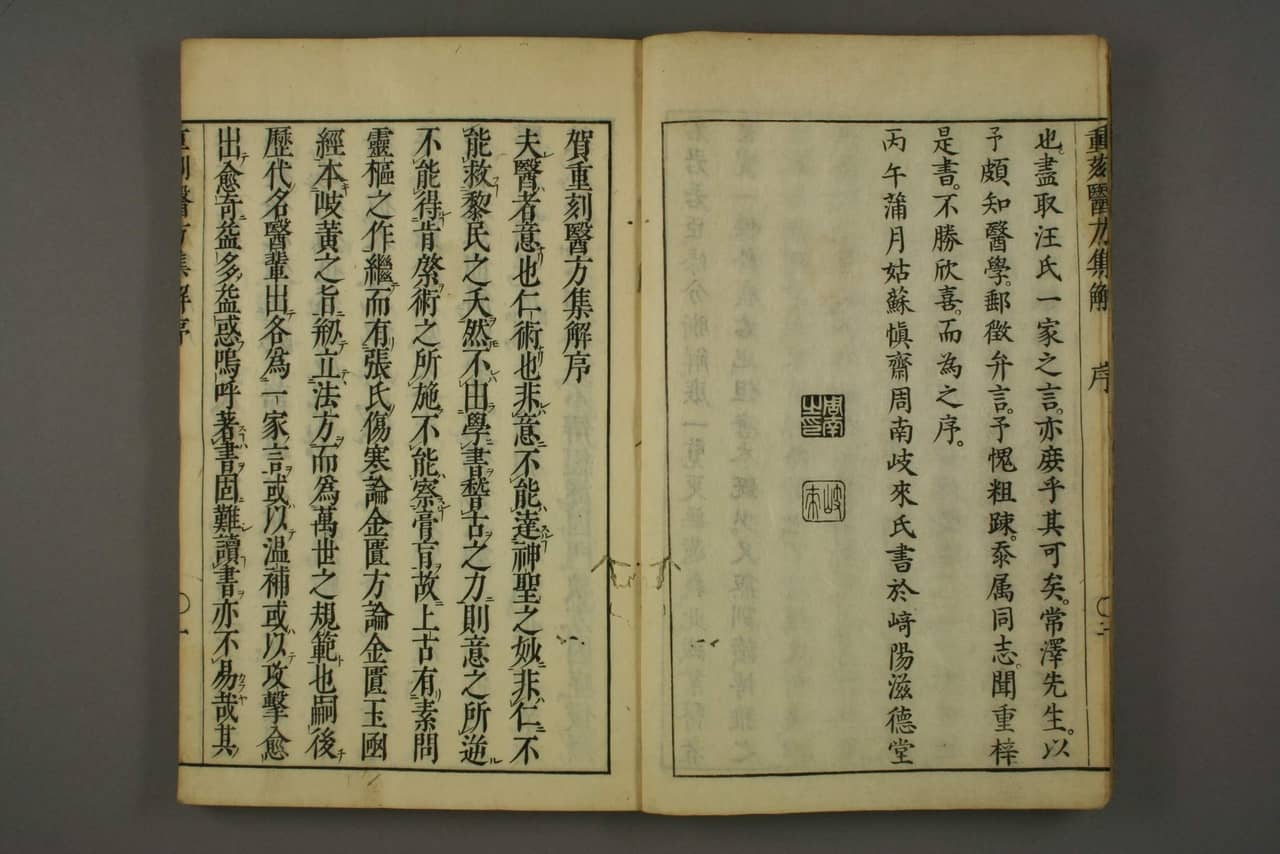 重刻醫方集解 序
也。盡取汪氏一家之言。亦庶乎其可矣。常澤先生。以
予頗知醫學。郵徵弁言。予愧粗踈。忝属同志。聞重梓
是書。不勝欣喜。而為之序。
丙午蒲月姑蘇愼齋周南岐來氏書於﨑陽滋德堂
周南之印
岐來
賀重刻醫方集解序
夫醫者意也仁術也非意不能達神聖之妙非仁不
能救黎民之夭然不由學書稽古之力則意之所逆
不能得肯綮術之所施不能察膏肓故上古有素問
靈樞之作繼而有張氏傷寒論金匱方論金匱玉函
經本岐黃之旨刱立法方而爲萬世之規範也嗣後
歷代名醫輩出各爲一家言或以溫補或以攻擊愈
出愈奇益多益惑嗚呼著書固難讀書亦不易哉其
重刻醫方集解序